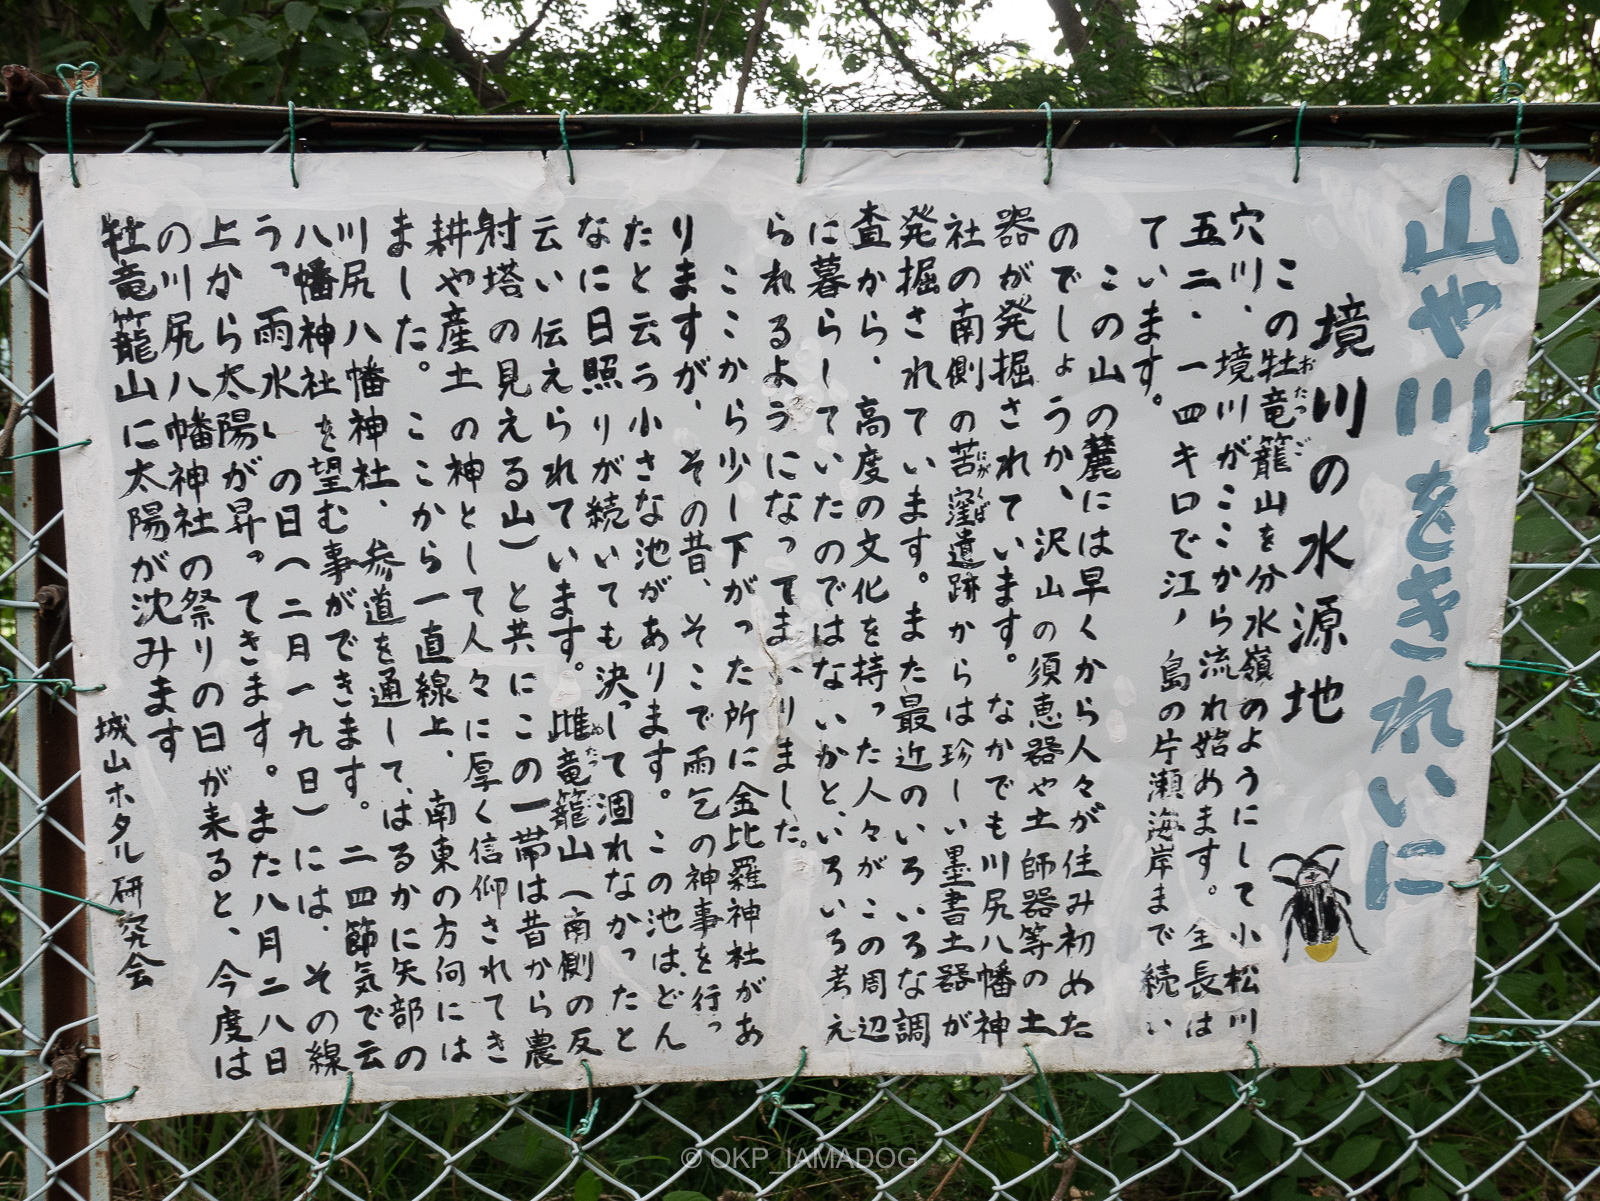 山や川をきれいに
境川の水源地
この牡竜籠山を分水嶺のようにして小松川
おたつご
穴川、境川がここから流れ始めます。全長は
五二・一四キロで江ノ島の片瀬海岸まで続い
ています。
この山の麓には早くから人々が住み初めた
のでしょうか、沢山の須恵器や土師器等の土
器が発掘されています。なかでも川尻八幡神
社の南側の苦窪遺跡からは珍しい墨書土器が
にがくぼ
発掘されています。また最近のいろいろな調
査から、高度の文化を持った人々がこの周辺
に暮らしていたのではないかと、いろいろ考え
られるようになってまいりました。
ここから少し下がった所に金比羅神社があ
りますが、その昔、そこで雨乞の神事を行っ
たと云う小さな池があります。この池は、どん
なに日照りが続いても決して涸れなかったと
云い伝えられています。雌竜籠山(南側の反
めたつご
射塔の見える山)と共にこの一帯は昔から農
耕や産土の神として人々に厚く信仰されてき
ました。ここから一直線上、南東の方向には
川尻八幡神社、参道を通して、はるかに矢部の
八幡神社を望む事ができます。二四節気で云
う「雨水」の日(二月一九日)には、その線
上から太陽が昇ってきます。また八月二八日
の川尻八幡神社の祭りの日が来ると、今度は
牡竜籠山に太陽が沈みます
城山ホタル研究会
© OKP_IAMADOG